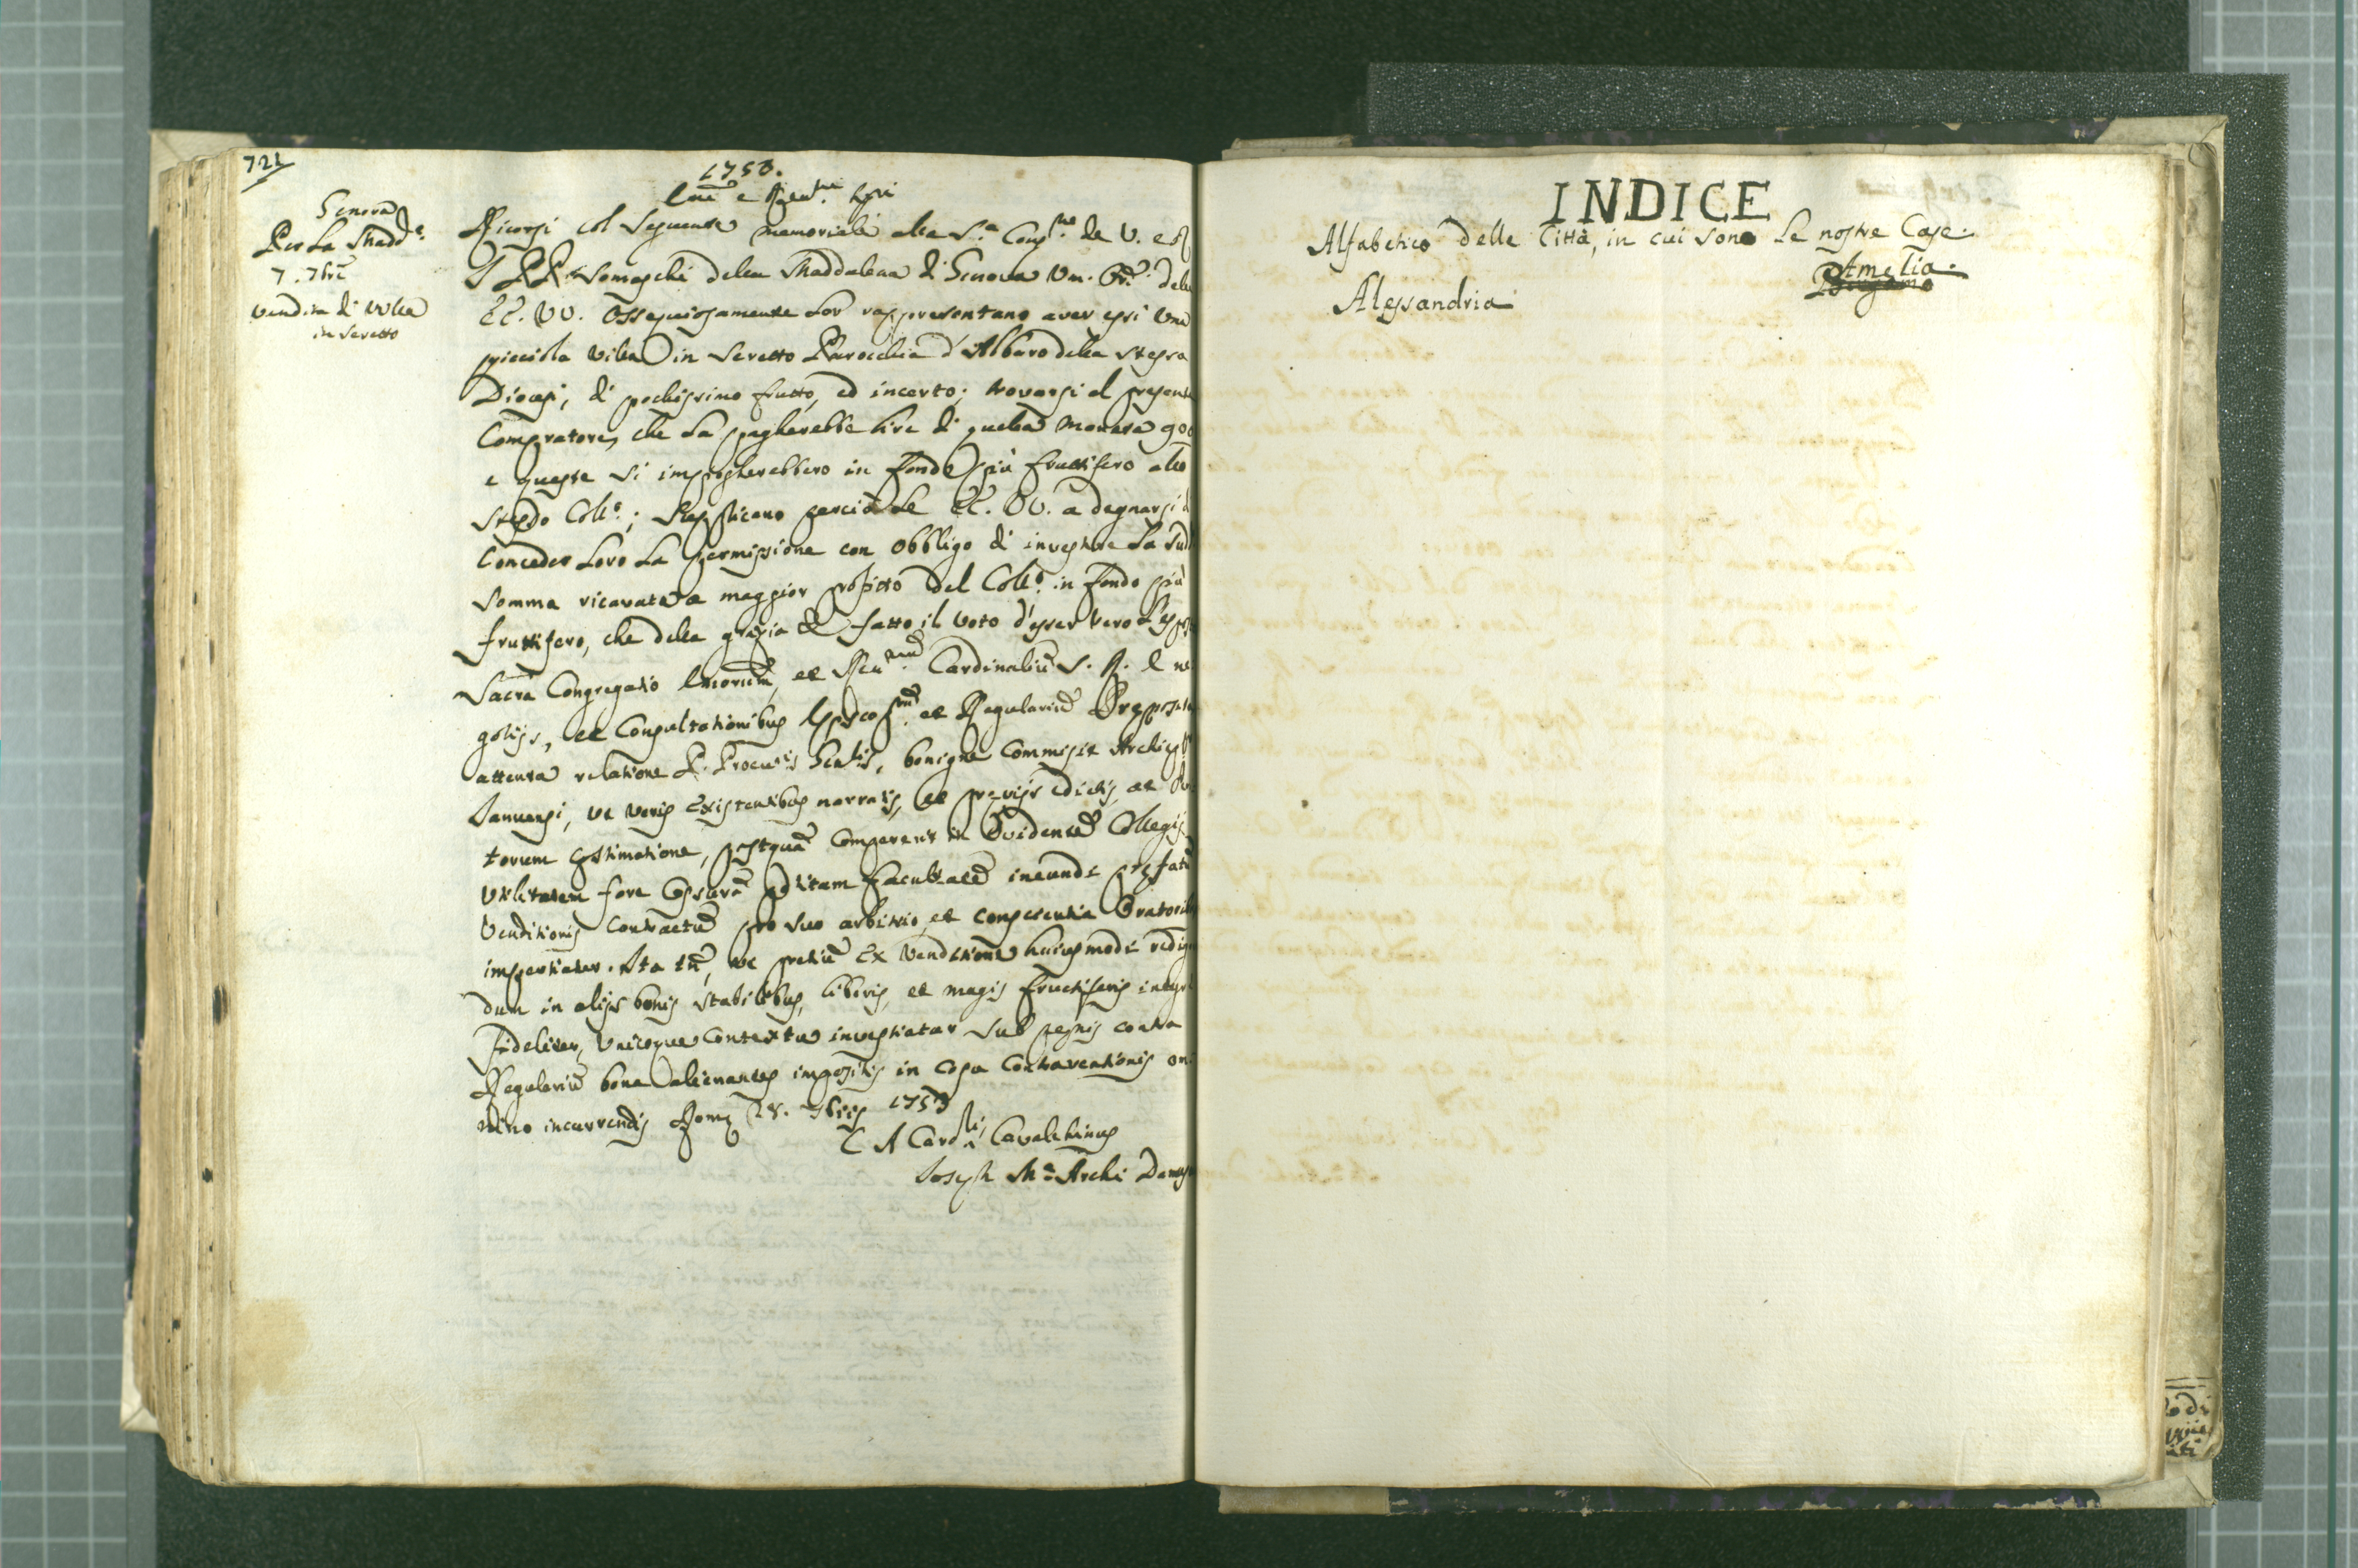 721
1753.
Genova
Per La Madd.ª
7. 7bre
vendita di villa
in Seretto
Emi e Rev.mi Sgri
Ricorsi col seguente memoriale alla S.ª Cong.ne de V. e R
I PP. Somaschi della Maddalena di Genova Um. Or.i delle
EE. VV. Ossequiosamente Lor rappresentano aver essi una
picciola villa in Seretto Parocchia d'Albaro della stessa
Diocesi, di pochissimo frutto, ed incerto; trovarsi al presente
Compratore, che La pagherebbe lire di quella moneta 900
e queste si impiegherebbero in Fondo più fruttifero allo
stesso Coll.º; Supplicano perciò Le EE. VV. a degnarsi di
Conceder Loro La permissione con obbligo di investire La sud
somma ricavata a maggior profitto del Coll.º in Fondo più
fruttifero, che della grazia &
fatto il voto d'esser vero L'espos
Sacra Congregatio Emorum, et Reu.rum Cardinaliū S. R. E ne
gotijs, et Consultationibus Episcop.rum et Regulariū Præposita
attenta relatione P. Procuris Gnlis, benigne Commisit Archiepō
Januensi, ut veris existentibus narratis, et prævijs edictis, et Peri
torum æstimatione, postquā Compererit in Evidentē Collegij
Utilitatem fore Cessurā petitam facultatē ineundi præfatū
Venditionis Contractū pro suo arbitrio, et conscientia Oratoribus
impertiatur. Ita tn̄, ut pretiū ex venditione huiusmodi redigen
dum in alijs bonis stabilibus, liberis, et magis fructiferis integre
Fideliter, unicoque Contextu investiatur sub pœnis contra
Regulariū bona alienantes impositis in casu Contraventionis om
nino incurrendis Romæ 28. 7bris 1753
C A Card.lis Cavalchinus
Joseph M.ª Archi Damas
INDICE
Alfabetico delle Città, in cui sono Le nostre Case.
Amelia.
Bergamo
Alessandria